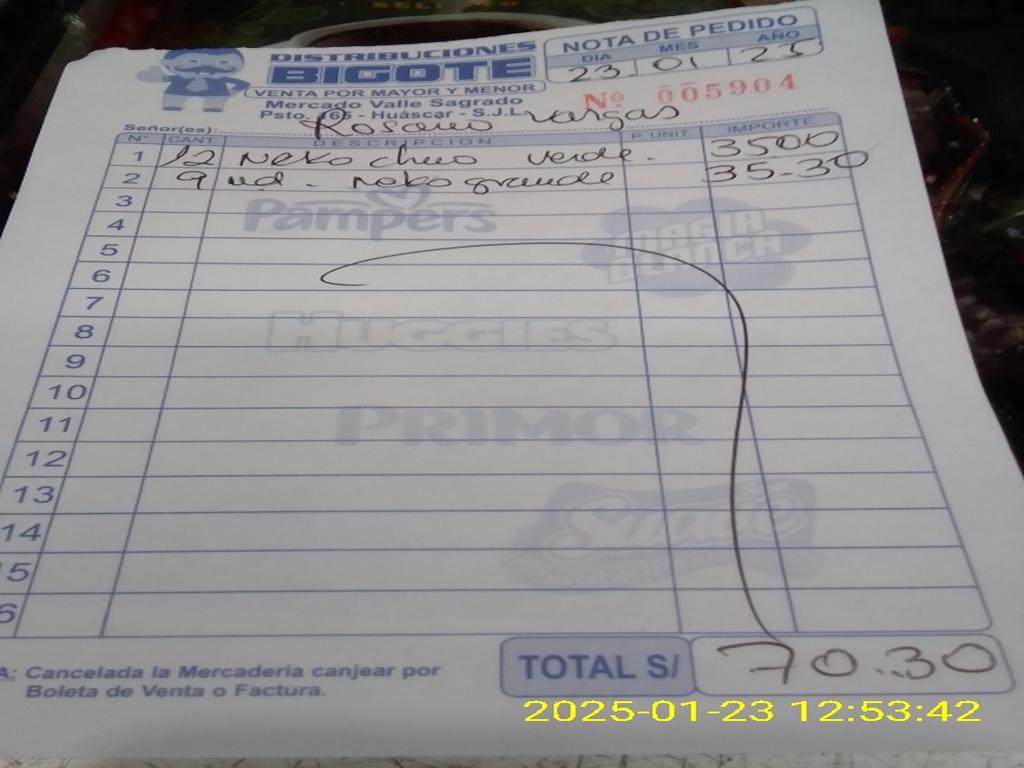 DISTRIBUCIONES
BIGOTE
VENTA POR MAYOR Y MENOR
Mercado Valle Sagrado
Psto. 165 - Huáscar - S.J.L.
NOTA DE PEDIDO
DIA MES AÑO
23 01 25
Nº 005904
Señor(es): Rosario Vargas
Nº CANT. DESCRIPCION P. UNIT. IMPORTE
1 12 Neko chico verde. 3500
2 9 ud. neko grande 35-30
3
Pampers
4
MAGIA BLANCA
5
6
7
8
HUGGIES
9
10
11
PRIMOR
12
13
14
Suave
5
6
A: Cancelada la Mercadería canjear por
Boleta de Venta o Factura.
TOTAL S/ 70.30
2025-01-23 12:53:42